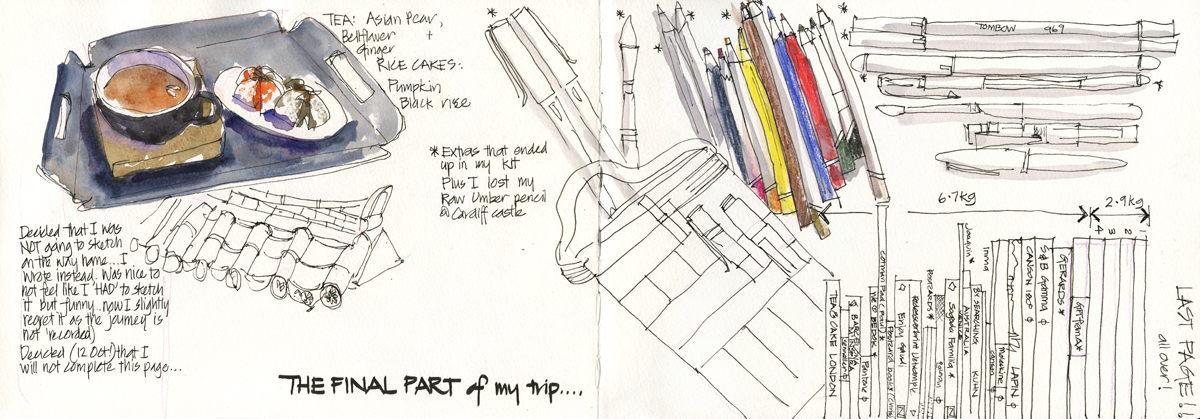 TEA: Asian Pear,
Bellflower +
Ginger
RICE CAKES:
Pumpkin
Black rice
* Extras that ended
up in my kit
Plus I lost my
Raw Umber pencil
@ Cardiff castle
Decided that I was
NOT going to sketch
on the way home...I
wrote instead. Was nice to
not feel like I 'HAD' to sketch
it but funny...now I slightly
regret it as the journey is
not 'recorded'
Decided (12 Oct!) that I
will not complete this page...
THE FINAL PART of my trip....
TOMBOW 969
6.7kg
2.9kg
1
2
3
4
GERARDS *
S&B Gamma
CANSON
LAPIN
moleskine
canson
Joaquin *
BY SEARCHING
AUSTRALIA
KUHN
Sagrada Familia
POSTCARDS *
Enjoy
Postcard books
BARCELONA
TEA & CAKE LONDON
LAST PAGE!!
all over!